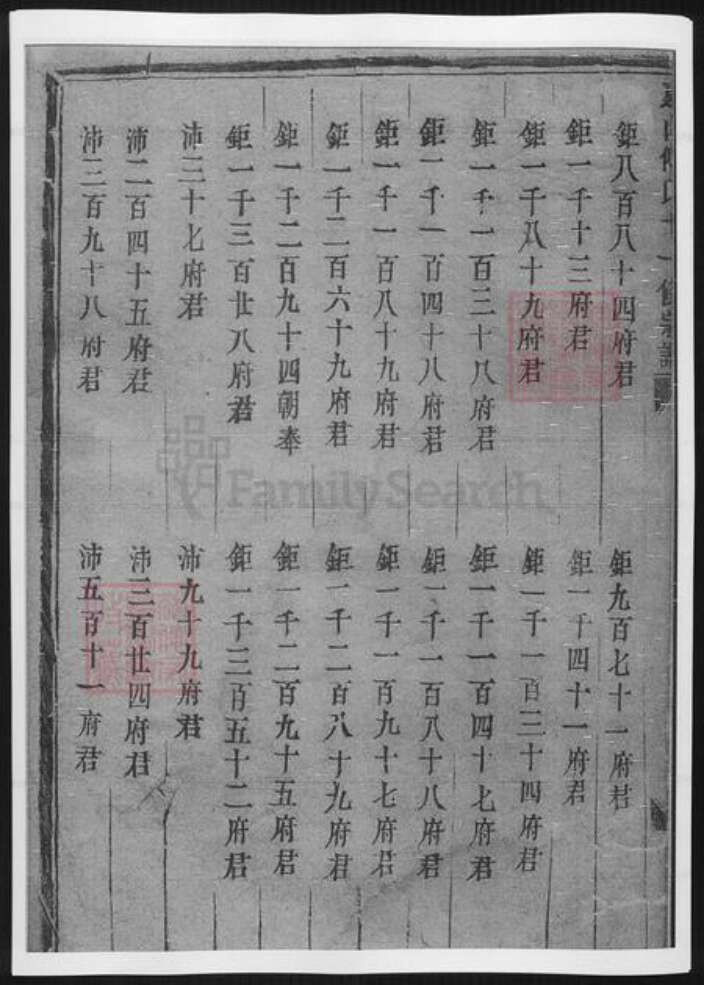 鉅八百八十四府君
鉅九百七十一府君
鉅一千十三府君
鉅一千四十一府君
鉅一千八十九府君
鉅一千一百三十四府君
鉅一千一百三十八府君
鉅一千一百四十七府君
鉅一千一百四十八府君
鉅一千一百八十八府君
鉅一千一百八十九府君
鉅一千一百九十七府君
鉅一千二百六十九府君
鉅一千二百八十九府君
鉅一千二百九十四朝奉
鉅一千二百九十五府君
鉅一千三百廿八府君
鉅一千三百五十二府君
沛三十七府君
沛九十九府君
沛二百四十五府君
沛三百廿四府君
沛三百九十八府君
沛五百十一府君
FamilySearch